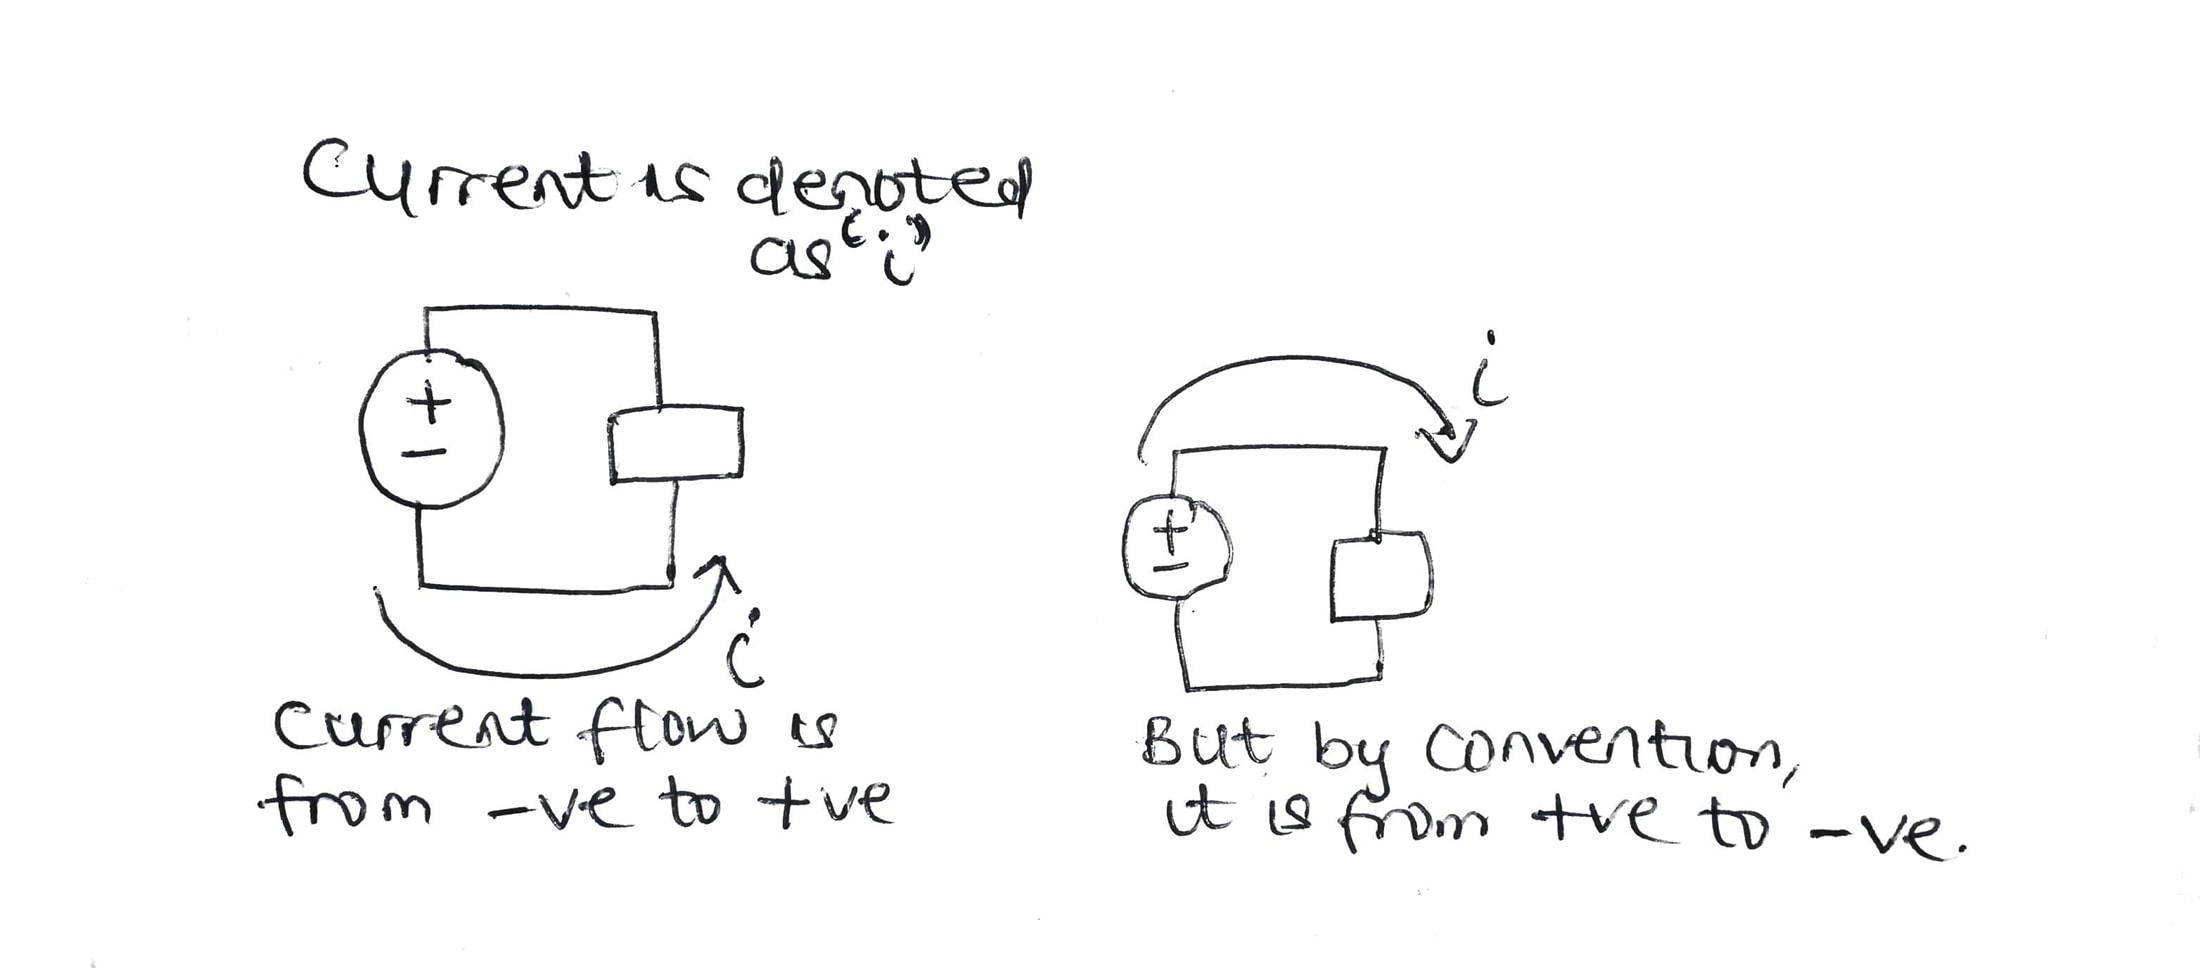 Current is denoted
as "i"
+
-
i
Current flow is
from -ve to +ve
i
+
-
But by convention,
it is from +ve to -ve.